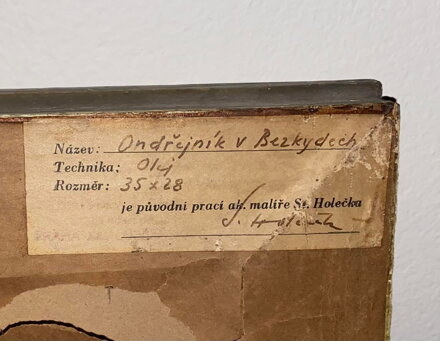 Název: Ondřejník v Bezkydech
Technika: Olej
Rozměr: 35 x 28
je původní prací ak. malíře St. Holečka
S. Holeček